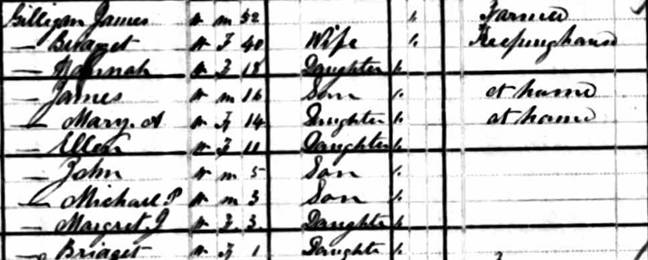 Gilligan James W M 52 1 Farmer
— Bridget W F 40 Wife 1 Keeping house
— Hannah W F 18 Daughter 1
— James W M 16 Son 1 at home
— Mary A W F 14 Daughter 1 at home
— Ellen W F 11 Daughter 1
— John W M 5 Son 1
— Michael P W M 3 Son 1
— Margret J W F 3 Daughter 1
— Bridget W F 1 Daughter 1